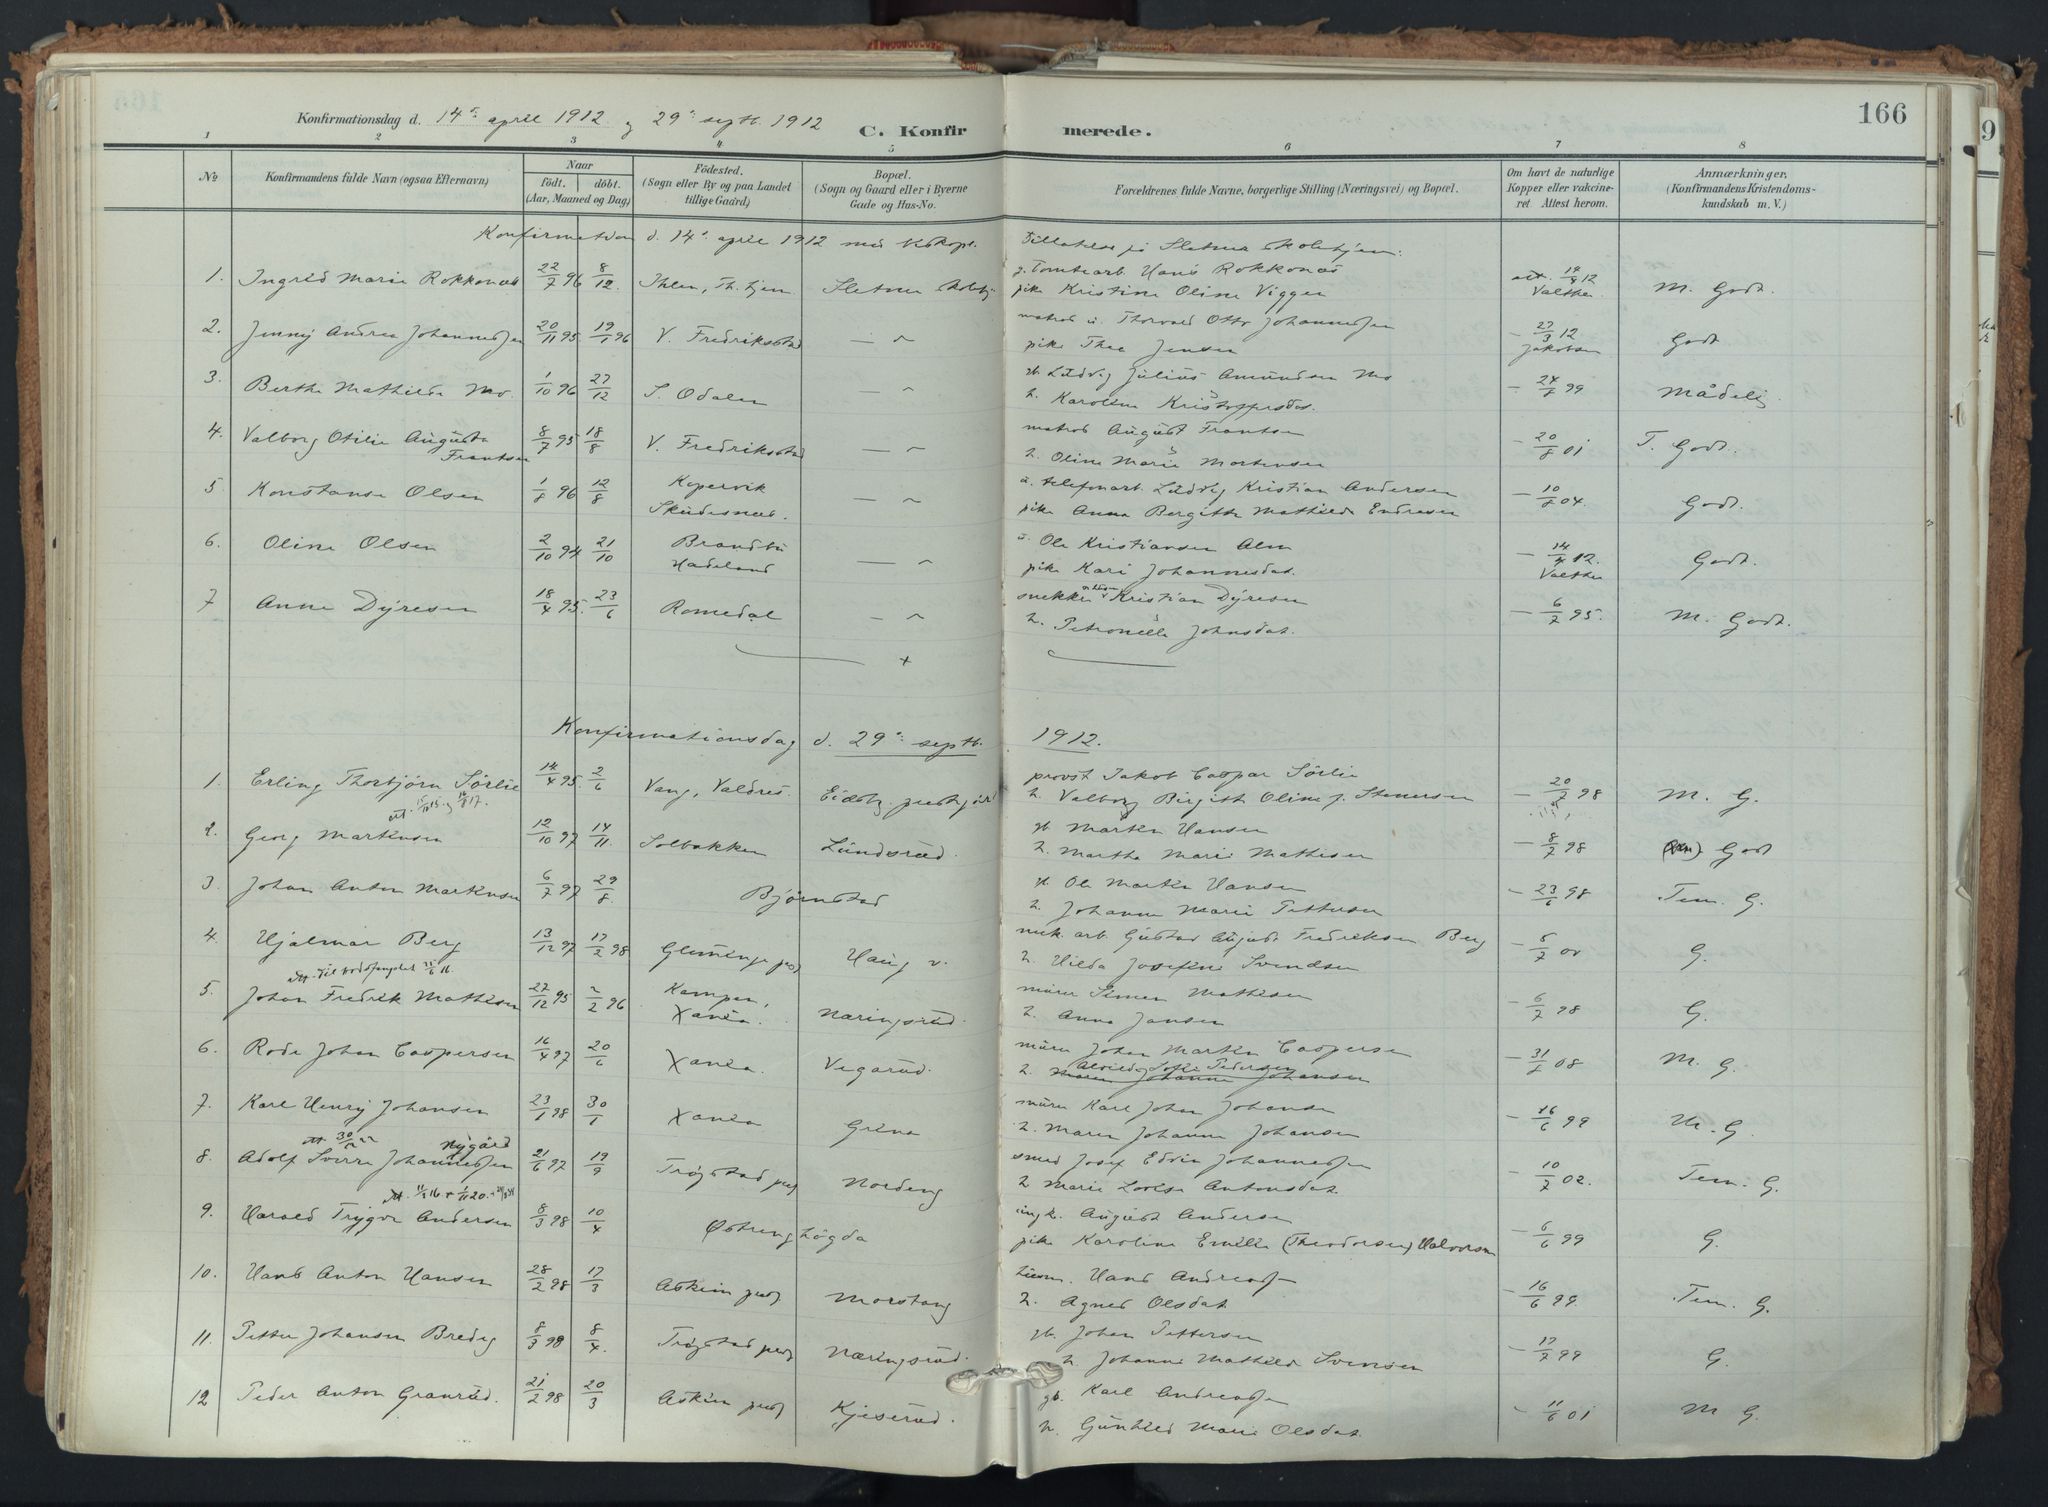 166
Konfirmationsdag d. 14de april 1912 og 29de septt. 1912
C. Konfirmerede.
1 2 3 4 5 6 7 8
No
Konfirmandens fulde Navn (ogsaa Efternavn)
Naar
födt. döbt.
(Aar, Maaned og Dag)
Födested.
(Sogn eller By og paa Landet
tillige Gaard)
Bopæl.
(Sogn og Gaard eller i Byerne
Gade og Hus-No.
Forældrenes fulde Navne, borgerlige Stilling (Næringsvei) og Bopæl.
Om havt de naturlige
Kopper eller vakcine-
ret. Attest herom.
Anmærkninger.
(Konfirmandens Kristendoms-
kundskab m. V.)
Konfirmation d. 14de april 1912 med biskopl. Tilladelse på Sletner skolehjem.
1. Ingrid Marie Rokkones 22/7 96 8/12 Ihlen, Th.hjem Sletner skolehj. f. Tomtearb. Hans Rokkones
pike Kristine Oline Viggen att. 14/4 12 Valther M. Godt.
2. Jenny Andrea Johannessen 20/11 95 19/1 96 V. Fredrikstad — " — matros u. Thorvald Otto Johannessen
pike Thea Jensen — 27/3 12 Jakobsen Godt
3. Berthe Mathilde Mo. 1/10 96 27/12 S. Odalen — " gb. Ludvig Julius Amundsen Mo
h. Karoline Kristoffersdat. — 24/8 99 Mådelig
4. Valborg Otilie Augusta Frantsen 8/7 95 18/8 V. Fredrikstad — " matros August Frantsen
h. Oline Marie Mortensen — 20/8 01 T. Godt.
5 Konstanse Olsen 1/8 96 12/8 Kopervik Skudesnes. — " u. telefonarb. Ludvig Kristian Andersen
pike Anna Bergitte Mathilde Endresen — 10/8 04. Godt.
6. Oline Olsen 2/10 94 21/10 Brandbu Hadeland — " u. Ole Kristiansen Alm
pike Kari Johannesdat. — 14/4 12. Valther Godt.
7 Anne Dyresen 18/4 95. 23/6 Romedal — " snekker Kristian Dyresen
h. Petronelle Johnsdat. — 6/7 95. M. Godt.
+
Konfirmationsdag d. 29de septb. 1912.
1. Erling Thorbjørn Sørlie 14/4 95. 2/6 Vang, Valdres. Eidsb. prestegård provst Jakob Caspar Sörlie
h. Valborg Birgitte Oline f. Stenersen — 20/7 98 M. G.
2. Georg Martinsen 12/10 97 14/11. Solbakken Lundsrud. gb. Martin Hansen
h. Marthe Marie Mathisen — 8/7 98 Godt
3. Johan Anton Martinsen 6/7 97 29/8. Bjørnstad gb. Ole Martin Hansen
h. Johanne Marie Pettersen — 23/6 98 Tem. G.
4. Hjalmar Berg 13/12 97 17/2 98 Glemminge prgj. Haug v. mek. arb. Gustav August Fredriksen Berg
h. Hilda Josefine Svendsen — 8/7 00 G.
5. Johan Fredrik Mathisen 27/12 95 2/2 96 Kampen, Xania. Næringsrud. murer Simen Mathisen
h. Anna Jansen — 6/7 98 G.
6. Rode Johan Caspersen 16/4 97 20/6 Xania. Vegarud. murer Johan Martin Caspersen
h. Alvilde Sofie Pedersen
Maren Johanne Johansen — 31/8 08 M. G.
7. Karl Henry Johansen 23/1 98 30/1 Xania Grina murer Karl Johan Johansen
h. Maren Johanne Johansen — 16/6 99 M. G.
8. Adolf Sverre Johannessen Nygård 21/6 97 19/9 Trøgstad prgj Nordeng smed Josef Edvin Johannessen
h. Marie Lovise Antonsdat. — 10/7 02. Tem. G.
9. Harald Trygve Andersen 8/3 98 10/4 Østeng Løgda ungk. August Andersen
pike Karoline Emilie (Theodorsen) Halvorsen — 6/6 99 G.
10. Hans Anton Hansen 28/2 98 17/3 Askim prgj Morstong husm. Hans Andreassen
h. Agnes Olsdat. — 16/6 99. Tem. G.
11. Petter Johansen Bredeg 8/3 98 8/4. Trøgstad prgj Næringsrud. gb. Johan Pettersen
h. Johanne Mathilde Svensen — 17/7 99 G.
12 Peder Anton Granrud. 21/2 98 20/3 Askim prgj Kjeserud. gb. Karl Andreassen
h. Gunhild Marie Olsdat. — 11/6 01 M G.